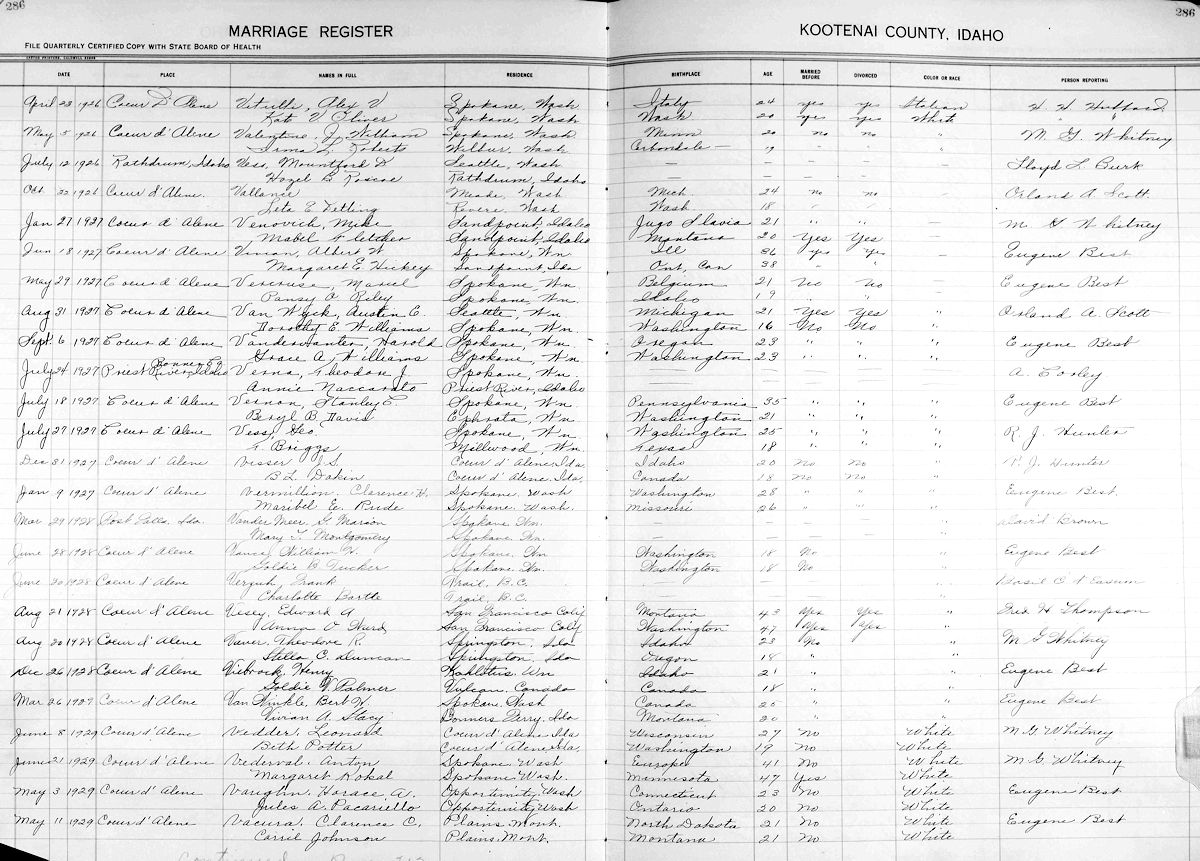 286
MARRIAGE REGISTER
FILE QUARTERLY CERTIFIED COPY WITH STATE BOARD OF HEALTH
KOOTENAI COUNTY, IDAHO
286
DATE PLACE NAMES IN FULL RESIDENCE BIRTHPLACE AGE MARRIED BEFORE DIVORCED COLOR OR RACE PERSON REPORTING
April 23 1926 Coeur D Alene Vitulli, Alex V Spokane, Wash Italy 24 yes yes Italian H. H. Hubbard
Kate V Oliver Spokane, Wash Wash 20 yes yes White "
May 5 1926 Coeur d'Alene Valentine, J. William Spokane, Wash Minn 20 no no " M. G. Whitney
Irma L. Roberts Wilbur, Wash Carbondale — 19 " " "
July 12 1926 Rathdrum, Idaho Vess, Mountford D Seattle, Wash — — — — — Lloyd L. Burk
Hazel B Roscoe Rathdrum, Idaho — — — — —
Oct. 22 1926 Coeur d'Alene. Vallanie Meade, Wash Mich 24 no no — Orland A. Scott
Leta E Tetting Revere, Wash Wash 18 " "
Jan 27 1927 Coeur d'Alene Venovich, Mike Sandpoint, Idaho Jugo Slavia 21 " " — M G Whitney
Mabel Fletcher Sandpoint, Idaho Montana 20 Yes Yes —
Jun 18 1927 Coeur d'Alene Vivian, Albert W. Spokane, Wn Ill 36 yes yes — Eugene Best
Margaret E. Hickey Sandpoint Ida Ont, Can 38 " "
May 29 1927 Coeur d'Alene Vercruse, Marcel Spokane, Wn. Belgium 21 No No — Eugene Best
Pansy A Riley Spokane, Wn. Idaho 19 " " "
Aug 31 1927 Coeur d'Alene Van Wyck, Austin C. Seattle, Wn. Michigan 21 Yes Yes " Orland A. Scott
Dorothy E. Williams Spokane, Wn. Washington 16 No No "
Sept. 6 1927 Coeur d'Alene Vanderwanter, Harold Spokane, Wn Oregon 23 " " " Eugene Best
Grace A. Williams Spokane, Wn Washington 23 " " "
July 24 1927 Priest River, Idaho Bonner Co Verna, Theodore J. Spokane, Wn. — — — — A. Corley
Annie Naccarato Priest River, Idaho — — — —
July 18 1927 Coeur d'Alene Vernon, Stanley C Spokane, Wn. Pennsylvania 35 " " " Eugene Best
Beryl B. Davis Ephrata, Wn. Washington 21 " " "
July 27 1927 Coeur d'Alene Vess, Geo. Spokane, Wn. Washington 25 " " " R. J. Hunter
Briggs Millwood, Wn. Texas 18 " " "
Dec 31 1927 Coeur d'Alene Visser J. S. Coeur d'Alene Ida Idaho 20 No No " R. J. Hunter
B. L. Dakin Coeur d'Alene, Ida. Canada 18 No No "
Jan 9 1927 Coeur d'Alene Vermillion, Clarence H. Spokane, Wash Washington 28 " " " Eugene Best.
Maribel E. Rude Spokane, Wash. Missouri 26 " " "
Mar 29 1928 Post Falls, Ida. Vander Meer, G. Marson Spokane, Wn. — — — — " David Brown
Mary T. Montgomery Spokane, Wn. — — — — "
June 28 1928 Coeur d'Alene Vance, William H. Spokane, Wn Washington 18 No " Eugene Best
Goldie B Tucker Spokane, Wn Washington 18 No "
June 20 1928 Coeur d'Alene Frank Trail, B.C. — — — — "
Charlotte Bartle Trail, B.C. — — — — "
Aug 21 1928 Coeur d'Alene Vesey, Edward A San Francisco Calif Montana 43 Yes Yes " Fred H Thompson
Anna V Ward San Francisco Calif Washington 47 Yes Yes "
Aug 20 1928 Coeur d'Alene Vaver, Theodore R. Spington, Ida Idaho 23 No " M G Whitney
Stella C. Duncan Spington, Ida Oregon 18 " "
Dec 26 1928 Coeur d'Alene Viebrock, Henry Kahlotus, Wn Idaho 21 " " Eugene Best
Goldie V. Palmer Vulcan, Canada Canada 18 " "
Mar 26 1929 Coeur d'Alene Van Winkle, Bert W. Spokane, Wash Canada 25 " " Eugene Best
Vivian A. Stacy Bonners Ferry, Ida Montana 20 " "
June 8 1929 Coeur d'Alene Vedder, Leonard Coeur d'Alene Ida Wisconsin 27 No White M. G. Whitney
Beth Potter Coeur d'Alene, Ida. Washington 19 No White
June 21 1929 Coeur d'Alene Vederval, Anton Spokane, Wash Europe 41 No White M. G. Whitney
Margaret Hokal Spokane, Wash. Minnesota 47 Yes White
May 3 1929 Coeur d'Alene Vaughn, Horace A. Opportunity, Wash Connecticut 23 No White Eugene Best
Jules A. Pacariello Opportunity, Wash Ontario 20 No White
May 11 1929 Coeur d'Alene Vacura, Clarence C. Plains, Mont. North Dakota 21 No White Eugene Best
Carril Johnson Plains, Mont. Montana 21 No White